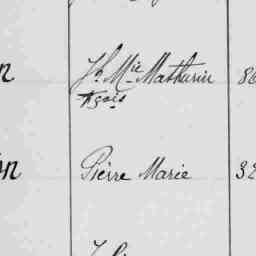 n Jh Mie Mathurin 86
frçois
on Pierre Marie 32